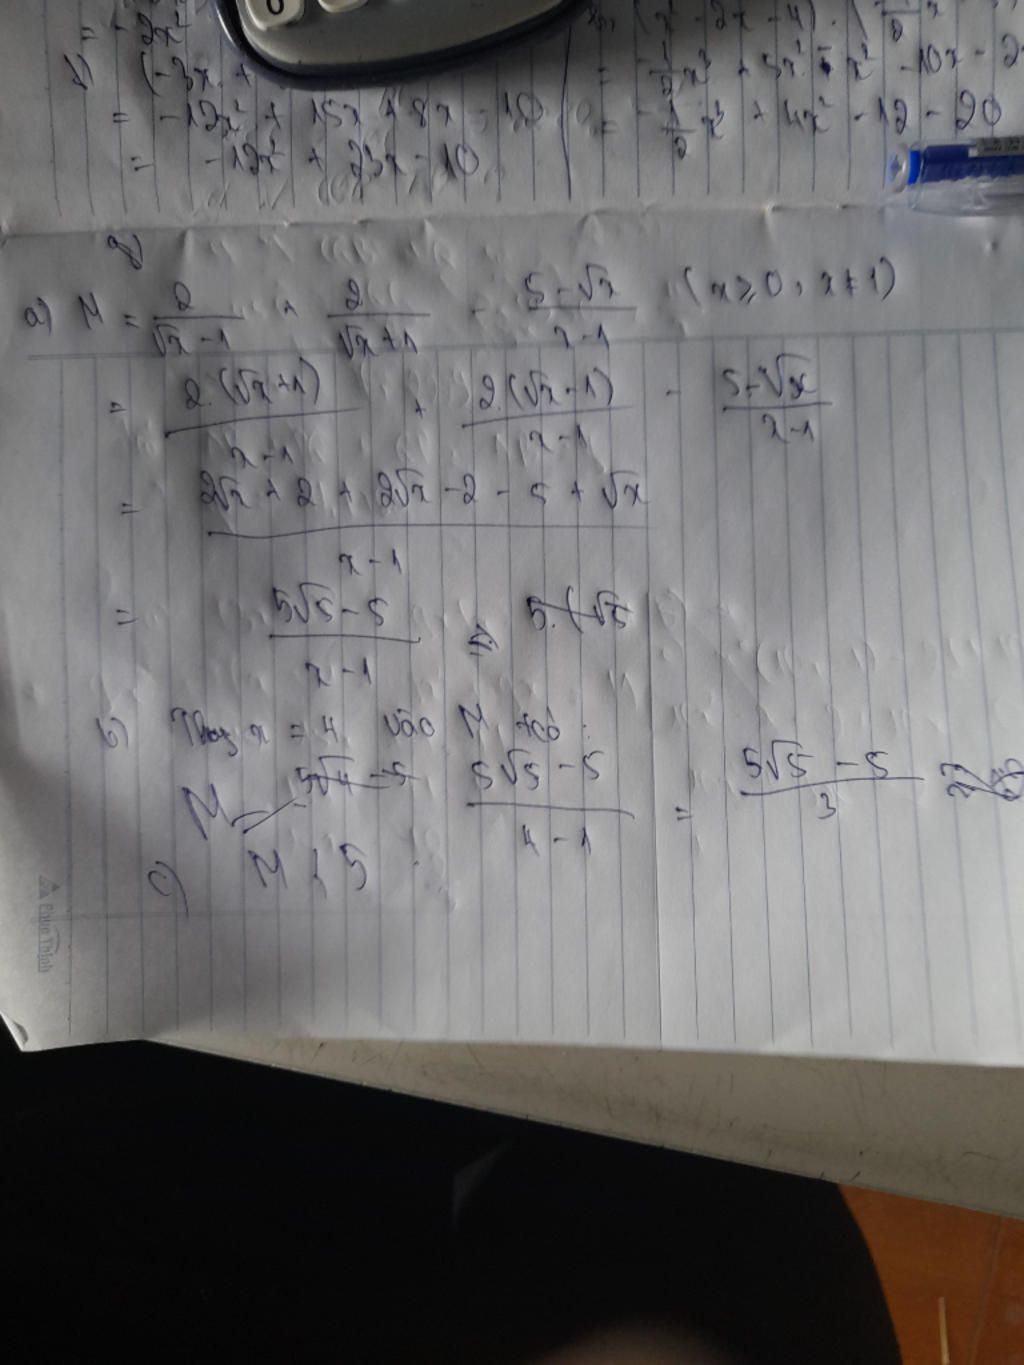 = -2x²
(-3x +
= -12x² + 15x + 8x - 10
= -12x² + 23x - 10
(x² - 2x - 4) . (
= -1/2 x³ + 5x² + x² - 10x - 2
= -1/2 x³ + 4x² - 12 - 20
8
a) M = 2/(√x - 1) + 2/(√x + 1) - (5 - √x)/(x - 1) (x ≥ 0, x ≠ 1)
= 2.(√x + 1)/(x - 1) + 2.(√x - 1)/(x - 1) - (5 - √x)/(x - 1)
= (2√x + 2 + 2√x - 2 - 5 + √x)/(x - 1)
= (5√5 - 5)/(x - 1) 5.(√x
b) Thay x = 4 vào M có:
M = (5√4 - 5 (5√5 - 5)/(4 - 1) = (5√5 - 5)/3
c) M < 5
Phúc Thịnh